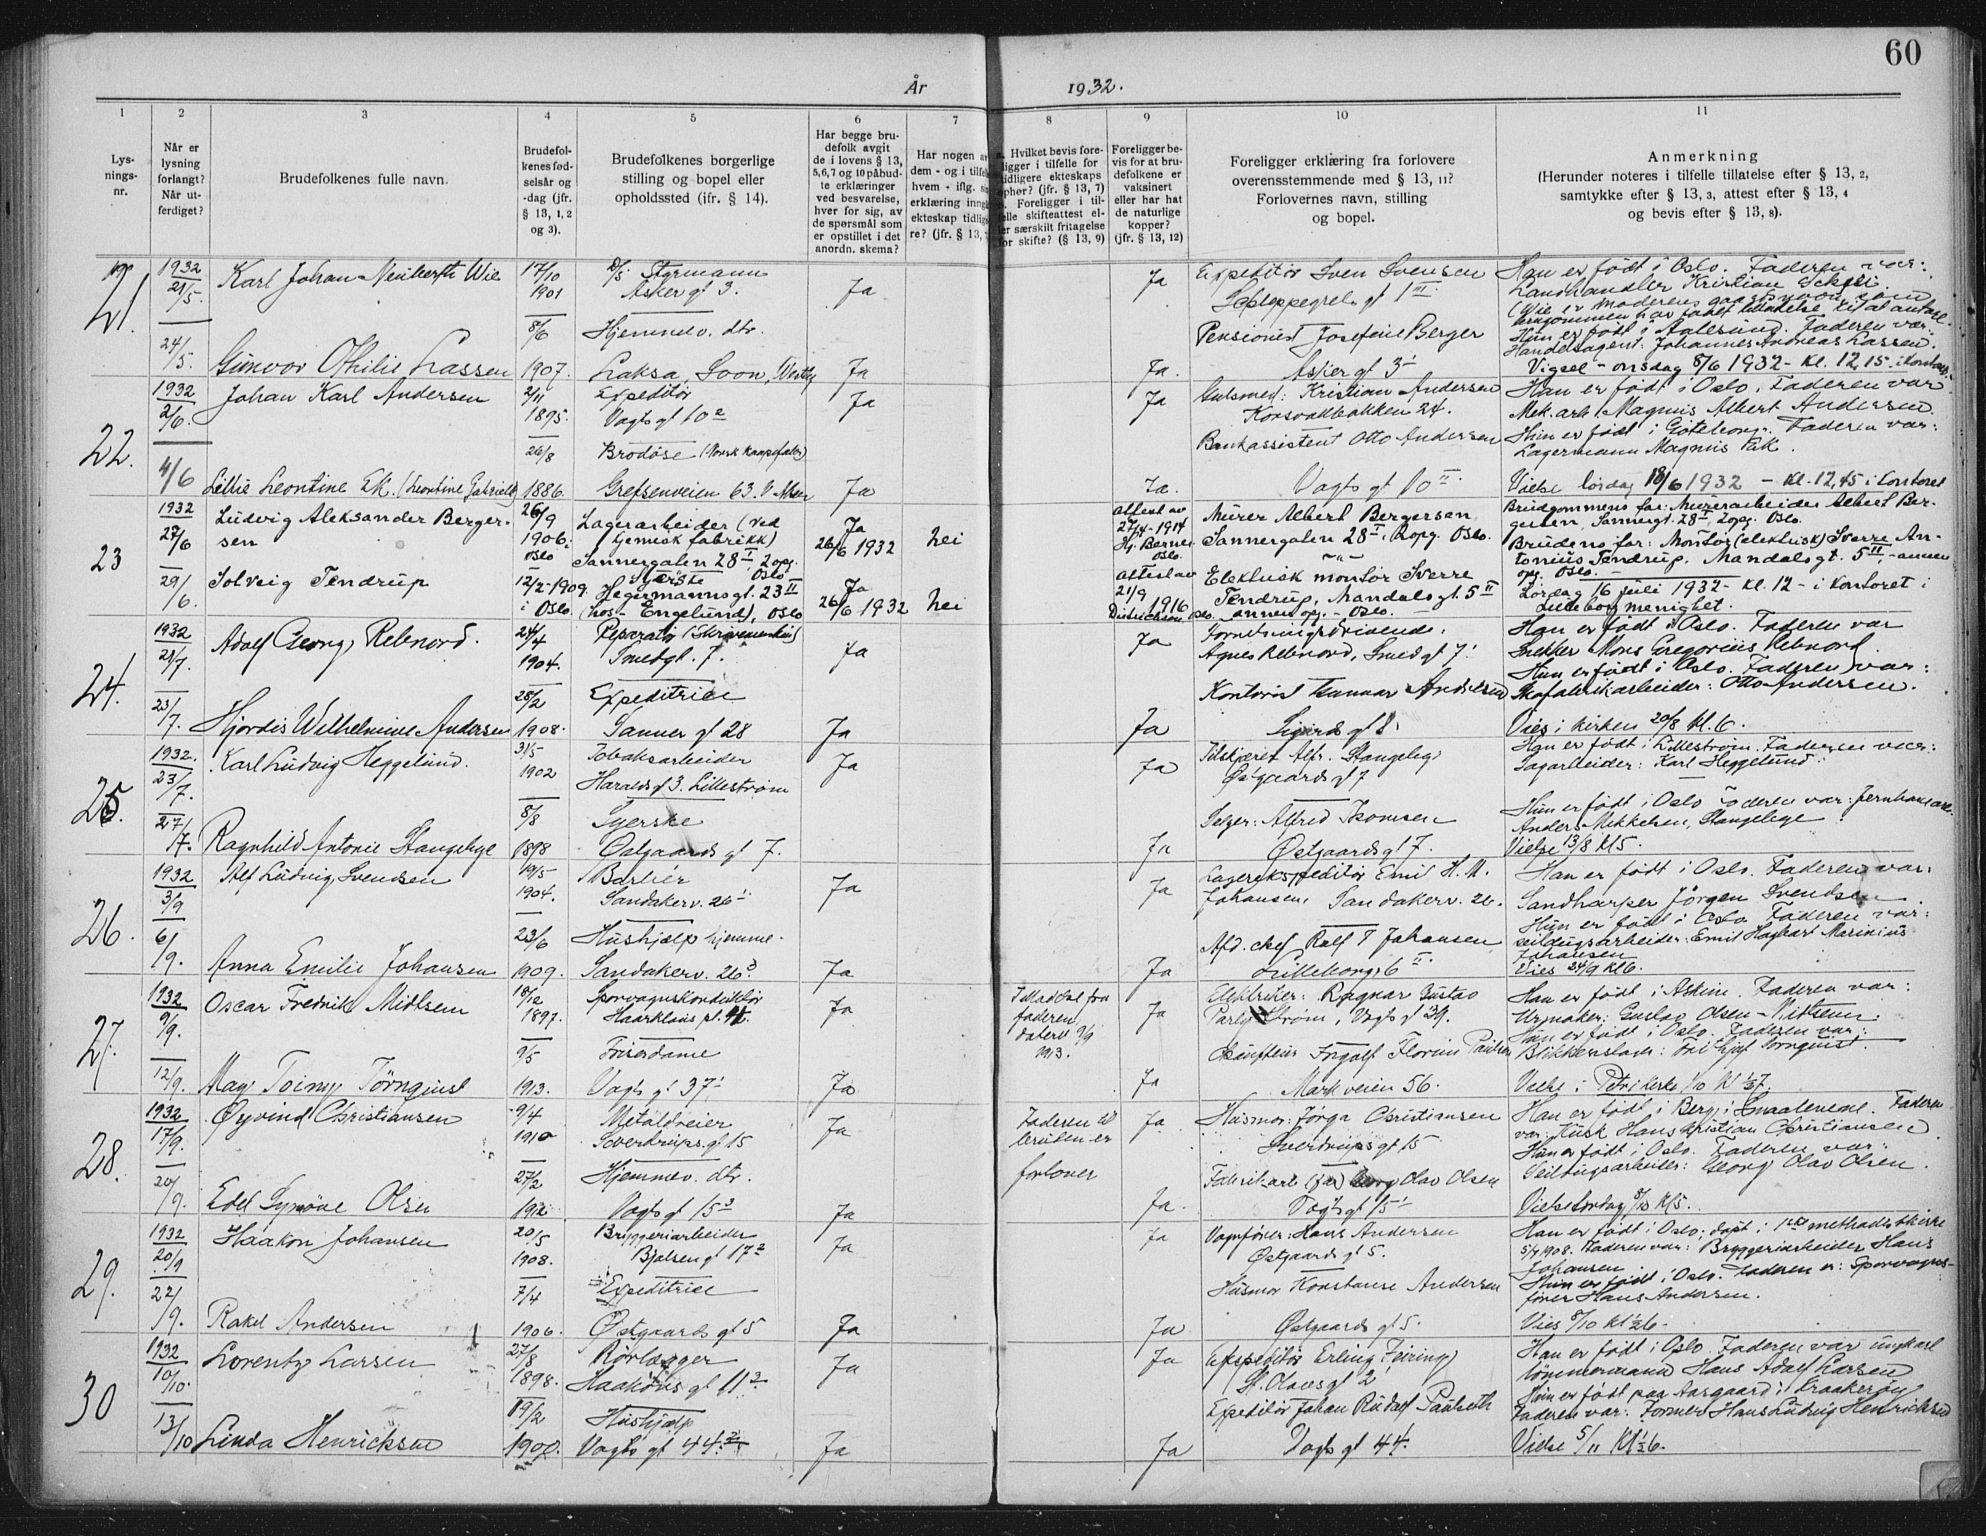 60
År 1932.
1 2 3 4 5 6 7 8 9 10 11
Lysningsnr.
Når er lysning forlangt? Når utferdiget?
Brudefolkenes fulle navn.
Brudefolkenes fødselsår og -dag (jfr. § 13, 1, 2 og 3).
Brudefolkenes borgerlige stilling og bopel eller opholdssted (ifr. § 14).
Har begge brudefolk avgit de i lovens § 13, 5,6,7 og 10 påbudte erklæringer ved besvarelse, hver for sig, av de spørsmål som er opstillet i det anordn. skema?
Har nogen a
dem - og i tilfel
hvem - iflg. si
erklæring inng
ekteskap tidlig
re? (jfr. § 13,
Hvilket bevis foreligger i tilfelle for tidligere ekteskaps ophør? (jfr. § 13, 7) Foreligger i tilfelle skifteattest eller særskilt fritagelse for skifte? (§ 13, 9)
Foreligger bevis for at brudefolkene er vaksinert eller har hat de naturlige kopper? (jfr. § 13, 12)
Foreligger erklæring fra forlovere overensstemmende med § 13, 11? Forlovernes navn, stilling og bopel.
Anmerkning
(Herunder noteres i tilfelle tillatelse efter § 13, 2, samtykke efter § 13, 3, attest efter § 13, 4 og bevis efter § 13, 8).
21.
1932 21/5. 24/5.
Karl Johan Wie
17/10 1901
Styrmann
Asker gt 3.
Ja
Ja
Expeditör Sven Svensen
Schleppegrels gt 1 III.
Han er född i Oslo. Faderen var:
Landhandler Kristian
Gunvor Othilie Lassen
8/6 1907.
Hjemmev. dtr.
Laksa, Soon, Westby
Ja
Ja.
Pensionist Josefine Berger
Asker gt 3
Hun er född i Aalesund. Faderen var:
Handelsagent: Johannes Andreas Lassen.
Vigsel - onsdag 8/6 1932 - Kl. 12,15
22.
1932 2/6. 4/6
Johan Karl Andersen
2/11 1895.
Expeditör
Vogts gt 10
Ja
Ja
Gulsmed: Kristian Andersen
Korsvoldbakken 24.
Han er född i Oslo. Faderen var
Mek. arb. Magnus Albert Andersen.
Lillie Leontine Ek. (Leontine Gabrielle)
26/8 1886.
Brodöse
Grefsenveien 63. V. Aker
Ja
Ja.
Bankassistent Otto Andersen
Vogts gt 10 II.
Hun er född i Göteborg. Faderen var:
Lagermann Magnus Ek.
Vielse lördag 18/6 1932 - Kl. 12,45 i Kontoret
23
1932 27/6 29/6
Ludvig Aleksander Bergersen
26/9 1906. Oslo
Lagerarbeider (ved
kjemisk fabrikk)
Sannergaten 28 I, 2 opg. Oslo
Ja
26/6 1932
nei
attest av
27/4-1914
Hj. Berner
Oslo.
Murer Albert Bergersen
Sannergaten 28 I, 2 opg. Oslo.
Brudgommens far: Murerarbeider Albert Bergersen, Sannergt. 28 I, 2 opg. Oslo.
Solveig Tendrup
12/2-1909. i Oslo
Syerske
Hegermannsgt. 23 II
(hos Engelund), Oslo
Ja
26/6 1932
nei
attest av
21/9 1916
Elektrisk montör Sverre
Tendrup, Mandalsgt. 5 II
annen opg. - Oslo.
Brudens far: Montör (elektrisk) Sverre Antonius Tendrup, Mandalsgt. 5 II, annen
opg. Oslo. -
Lördag 16 juli 1932 - Kl. 12 - i Kontoret i
Lilleborg menighet.
24.
1932 21/7. 23/7.
Adolf Georg Rebnord.
24/4 1904.
Reparatör
Smedgt. 7.
Ja
Ja
Forretningsdrivende.
Agnes Rebnord, Smedgt 7.
Han er född i Oslo. Faderen var
Snekker Mons Gregorius Rebnord.
Hjordis Wilhelmine Andersen
28/2 1908.
Expeditrice
Sanner gt 28
Ja
Ja
Kontorist Gunnar Andersen
Sigurds gt 8.
Hun er född i Oslo. Faderen var:
Skofabrikarbeider: Otto Andersen.
Vies i kirken 20/8 kl. 6.
25
1932. 23/7. 27/7.
Karl Ludvig Heggelund.
31/5 1902
Tobaksarbeider
Haralds gt 3. Lilleström
Ja
Ja
Tilskjærer Alfr. Stangebye
Östgaards gt 7
Han er född i Lilleström. Faderen var:
Sagarbeider: Karl Heggelund.
Ragnhild Antonie Stangebye
8/8 1898
Syerske
Östgaards gt 7.
Ja
Selger: Alfred Thomsen
Östgaards gt 7.
Hun er född i Oslo. Faderen var:
Anders Mikkelsen Stangebye
Vielse 13/8 kl 5.
26.
1932 3/9 6/9.
Alf Ludvig Svendsen
19/5 1904.
Barber
Sandakerv. 26
Ja
Ja
Lagerekspeditör Emil H. M.
Johansen Sandakerv. 26.
Han er född i Oslo. Faderen var:
Jörgen Svendsen
Anna Emilie Johansen
23/6 1909.
Hushjælp hjemme.
Sandakerv. 26
Ja
Ja
Afd. chef Ralf T Johansen
Lilleborg 6 II.
Hun er född i Oslo Faderen var:
seildugsarbeider: Emil Hagbart Marinius
Johansen
Vies 24/9 kl 6.
27.
1932 9/9. 12/9.
Oscar Fredrik Midtsem
18/12 1897.
Sporvagnskonduktör
Haarklaus pl.
Ja
Tilladelse fra
faderen
dateret 9/9
Ja
Elektriker: Ragnar Gustav
Ström, Vogts gt 39.
Han er född i Askim. Faderen var:
Urmaker: Gustav Olsen-Mitsem.
May Toiny Törnquist
9/5 1913.
Frisördame
Vogts gt 37
Ja
Ja
Ingolf Florin Paulsen
Markveien 56.
Hun er född i Oslo. Faderen var:
Blikkenslager: Fridtjof Törnquist.
Vielse i Petri kirke 1/10 kl 1/2 7.
28.
1932 17/9. 20/9.
Öyvind Christiansen
9/4 1910
Metaldreier
Sverdrups gt 15
Ja
Faderen til
bruden er
forlover
Ja
Husmor: Borga Christiansen
Sverdrups gt 15
Han er född i Berg i Smaalenene. Faderen
var: Kusk Hans Kristian Christiansen.
Edel Synnöve Olsen
27/2 1912
Hjemmev. dtr.
Vogts gt 15
Ja
Ja.
Fabrikarb. (far) Georg Olav Olsen
Vogts gt 15
Hun er född i Oslo. Faderen var:
Seildugsarbeider: Georg Olav Olsen.
Vielse lördag 8/10 kl 5.
29.
1932 20/9 22/9.
Haakon Johansen
20/5 1908.
Bryggeriarbeider
Bjölsen gt 17
Ja
Ja
Vognförer: Hans Andersen
Östgaards gt 5.
Han er född i Oslo, döpt i 1ste methodistkirke
5/7 1908. Faderen var: Bryggeriarbeider Hans
Johansen
Rakel Andersen
7/4 1906.
Expeditrice
Östgaards gt 5
Ja
Ja
Husmor Konstanse Andersen
Östgaards gt 5.
Hun er född i Oslo. Faderen er: Sporvognsförer Hans Andersen.
Vies 8/10 kl 1/2 6.
30
1932 10/10. 13/10
Lorentz Larsen
27/8 1898.
Rörlægger
Haakons gt 11
Ja
Ja
Ekspeditör Erling Feiring
St. Olavs gt 2
Han er född i Oslo. Faderen var ungkarl
tömmermand Hans Adolf Larsen
Linda Henricksen
19/2 1900.
Hushjælp
Vogts gt 44
Ja
Ja
Expeditör Johan Rudolf Paulseth
Vogts gt 44.
Hun er född paa Aasgaard i Kraakeröy
Faderen var: Former Hans Ludvig Henricksen
Vielse 5/11 kl 1/2 6.